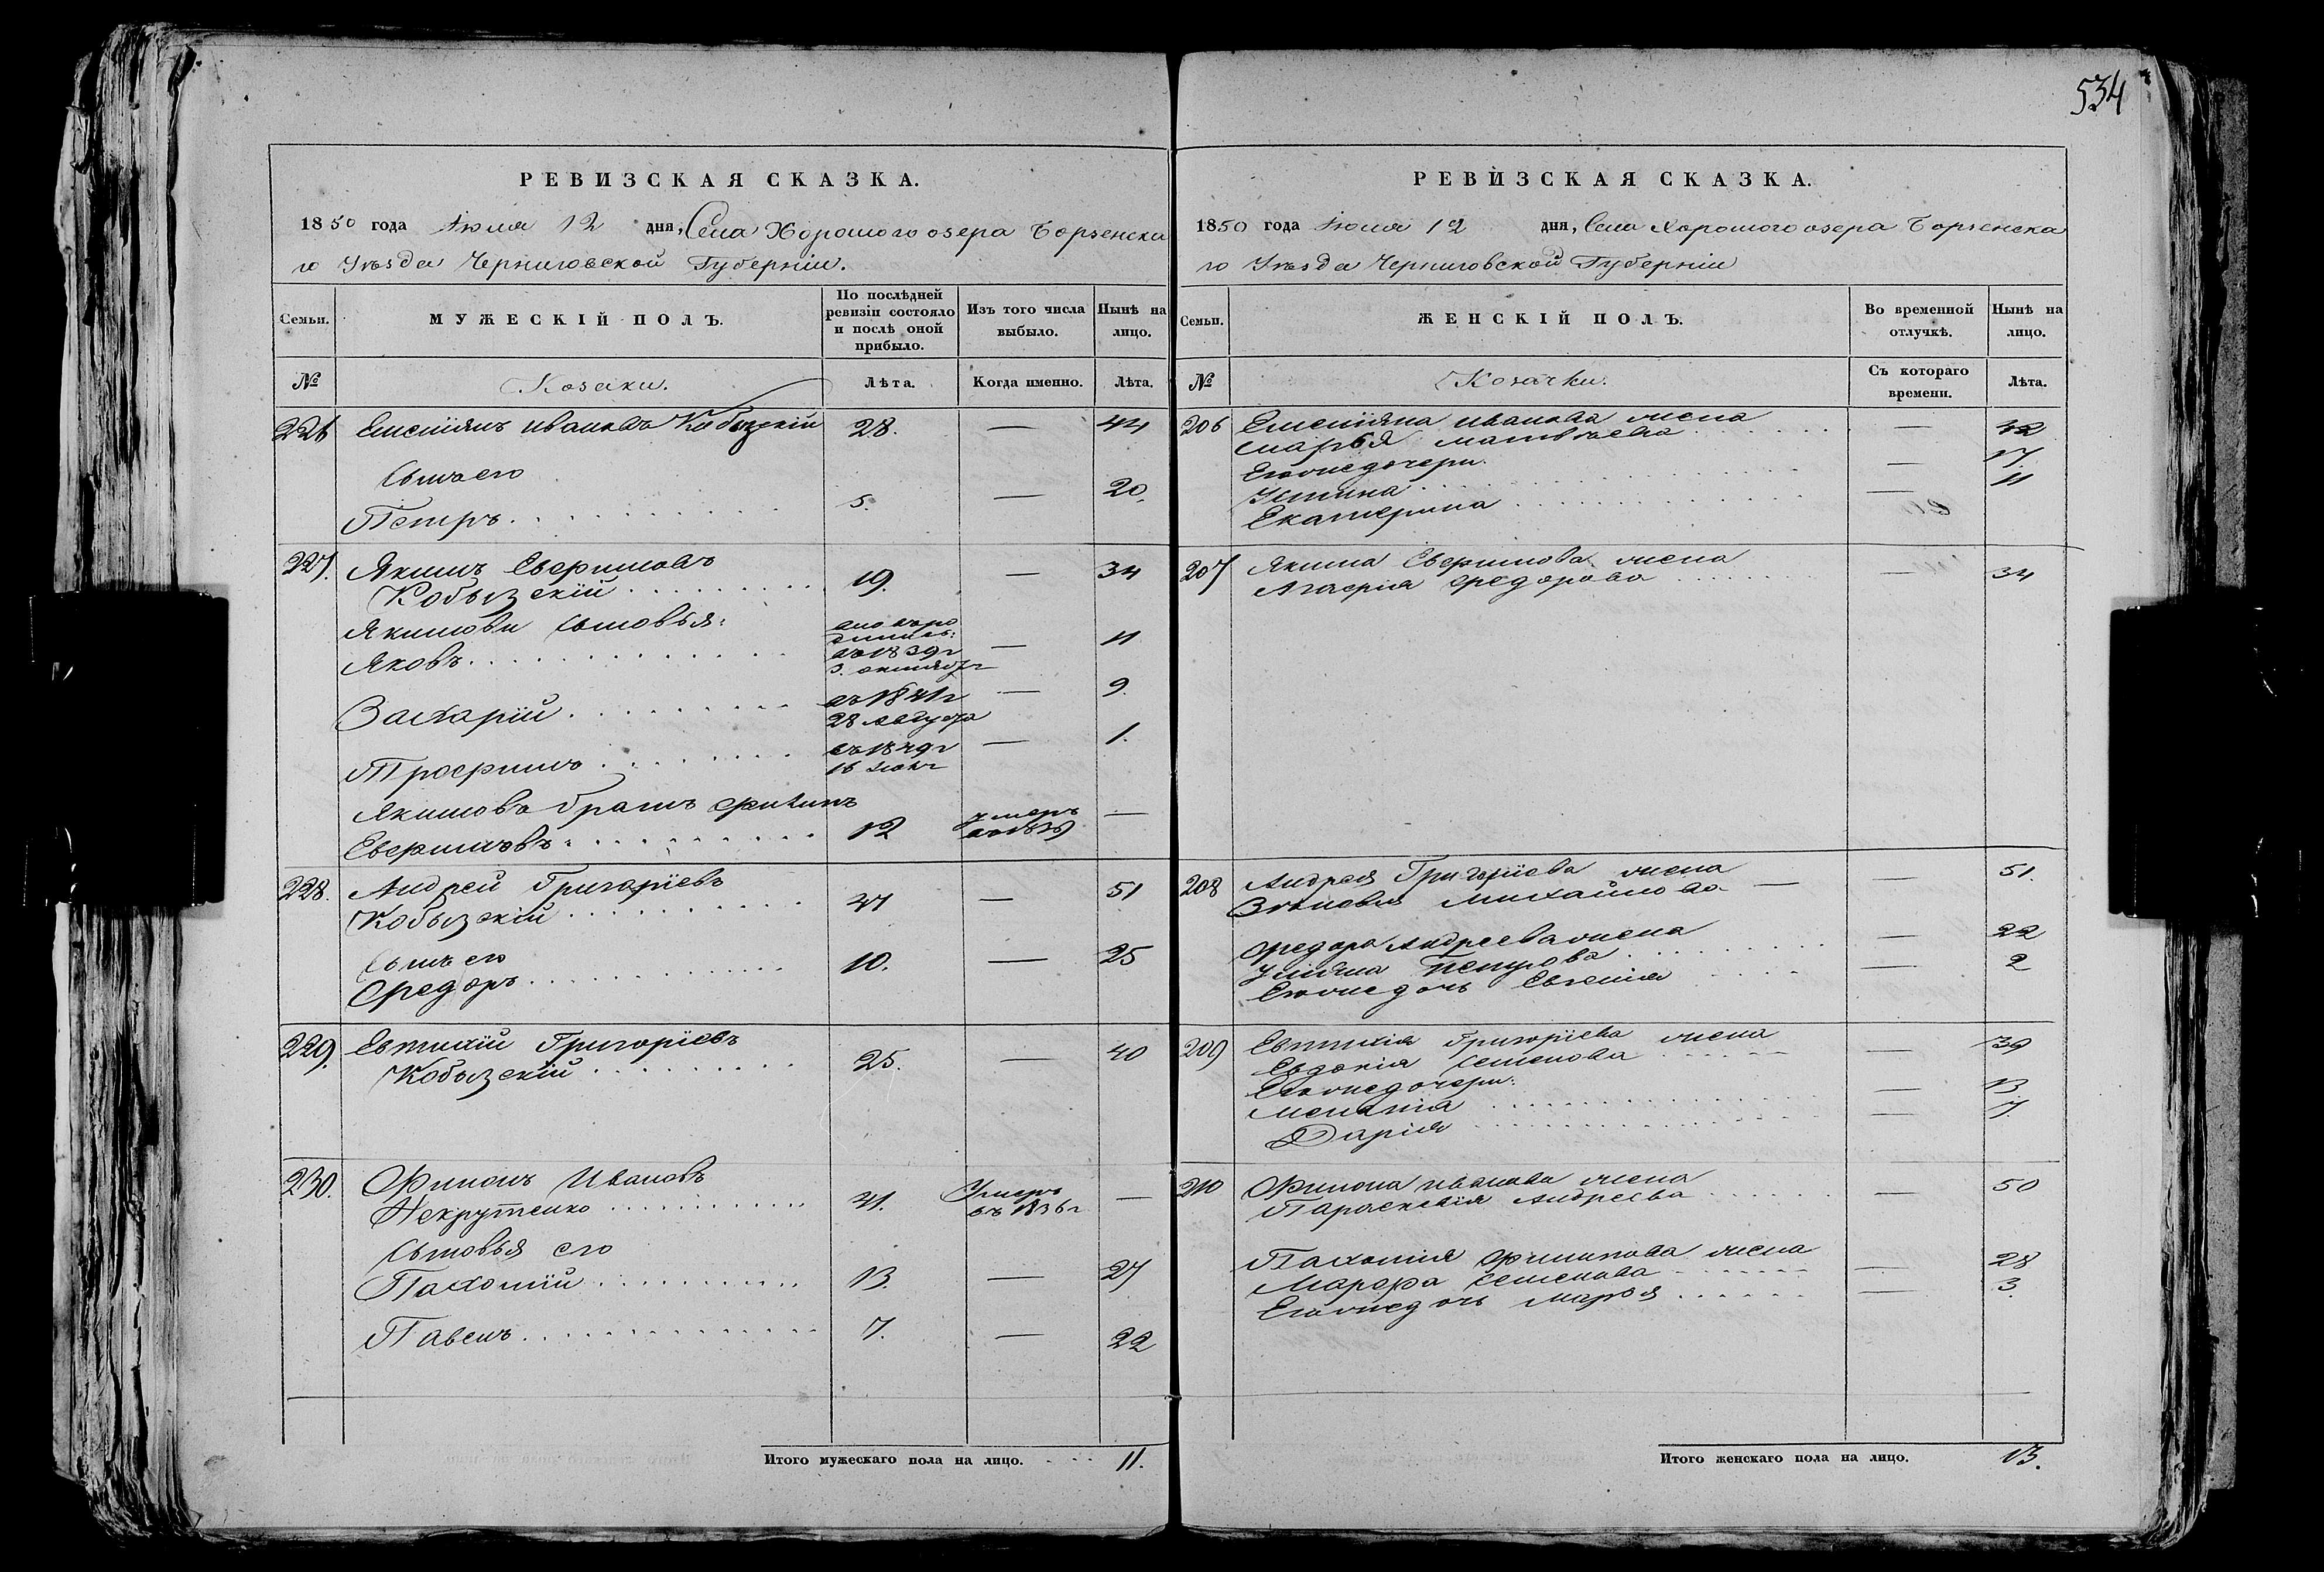 534
РЕВИЗСКАЯ СКАЗКА.
1850 года Июля 12 дня, Села Хорошого озера Борзенска
го Уѣзда Черниговской Губерніи.
Семьи. МУЖЕСКІЙ ПОЛЪ. По послѣдней ревизіи состояло и послѣ оной прибыло. Изъ того числа выбыло. Нынѣ на лицо.
№ Козаки. Лѣта. Когда именно. Лѣта.
226 Емеліянъ Ивановъ Кобызскій 28. — 44
Сынъ его
Петръ 5. — 20.
227. Якимъ Евфимовъ
Кобызскій 19. — 34
Якимовы сыновья:
Яковъ въ 1839 г 3. октября — 11
Захарій въ 1841 г 28 Августа — 9.
Трофимъ въ 1849 г 16 — 1.
Якимовъ братъ Филипъ
Евфимовъ 12 умеръ —
228. Андрей Григоріевъ
Кобызскій 41 — 51
Сынъ его
Федоръ 10. — 25
229. Евтихій Григоріевъ
Кобызскій 25. — 40
230. Филипъ Ивановъ
Некрутенко 41. Умеръ въ 1836 г —
Сыновья его
Пахомій 13. — 27
Павелъ 7. — 22
Итого мужескаго пола на лицо. 11.
РЕВИЗСКАЯ СКАЗКА.
1850 года Июля 12 дня, Села Хорошого озера Борзенска
го Уѣзда Черниговской Губерніи
Семьи. ЖЕНСКІЙ ПОЛЪ. Во временной отлучкѣ. Нынѣ на лицо.
№ Козачки. Съ котораго времени. Лѣта.
206 Емеліяна Иванова жена
Марья Матвѣева — 42
Его же дочери
Устина — 17.
Екатерина — 11
207 Якима Евфимова жена
Агафія Федорова — 34
208 Андрея Григоріева жена
Зѣновія Михайлова — 51.
Федора Андреева жена
Уліяна Петрова — 22
Его же дочь Евгенія — 2
209 Евтихія Григоріева жена
Евдокія Семенова — 39
Его же дочери:
Меланія — 13.
Дарія — 7.
210 Филипа Иванова жена
Параскевія Андреева — 50
Пахомія Филипова жена
Марфа Семенова — 28
Его же дочь Марья — 3.
Итого женскаго пола на лицо. 13.